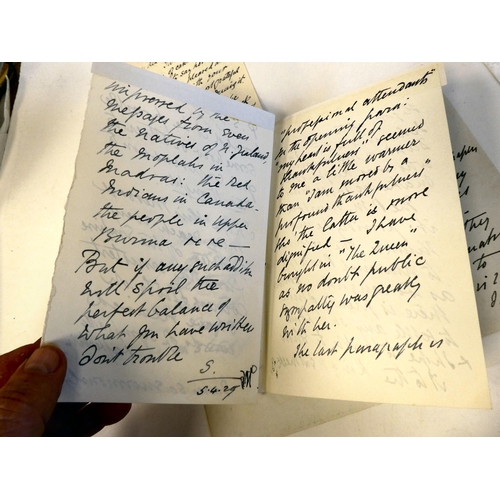 impressed by the
messages from even
the natives of N. Zealand
the Moplahs in
Madras: the Red
Indians in Canada-
the people in Upper
Burma &c &c —
But if any such addition
will spoil the
perfect balance of
what you have written
don't trouble
S.
5.4.29
"professional attendants"
In the opening para:
"my heart is full of
thankfulness," seemed
to me a little warmer
than "I am moved by a
profound thankfulness"
tho' the latter is more
dignified — I have
brought in "The Queen"
as no doubt public
sympathy was greatly
with her.
The last paragraph is